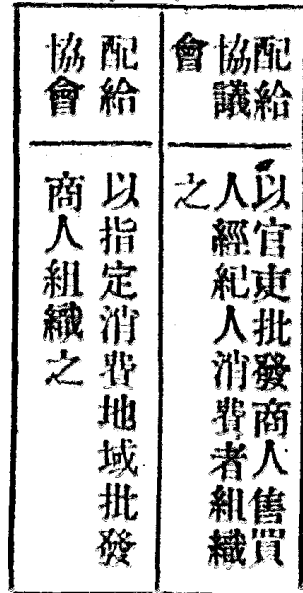 配給
協議
會
以官吏批發商人售買
人經紀人消費者組織
之
配給
協會
以指定消費地域批發
商人組織之